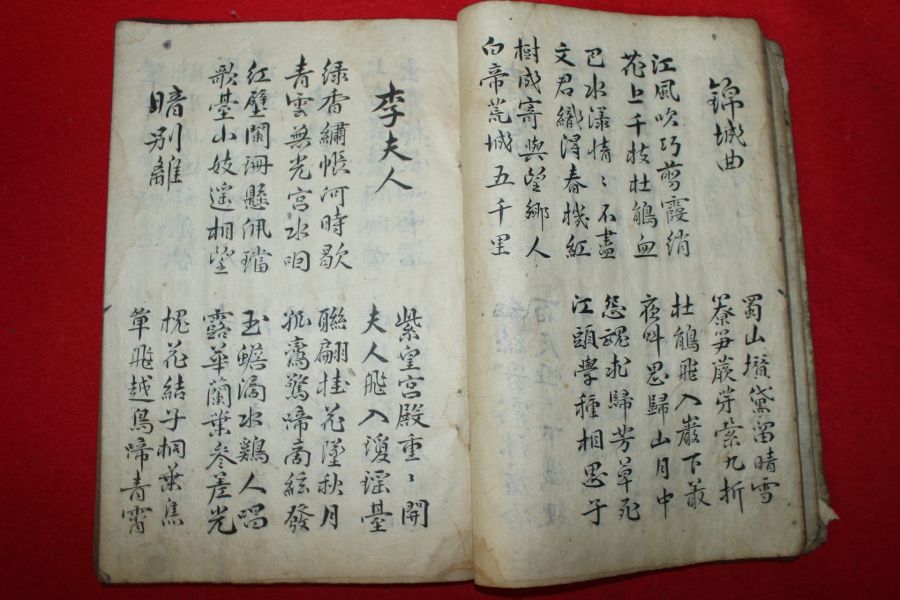 錦城曲
蜀山攢黛留晴雪
簝笋蕨芽縈九折
江風吹巧剪霞綃
花上千枝杜鵑血
杜鵑飛入巖下叢
夜叫思歸山月中
巴水漾情〻不盡
文君織得春機紅
怨魂未歸芳草死
江頭學種相思子
樹成寄與望鄉人
白帝荒城五千里
李夫人
紫皇宮殿重〻開
夫人飛入瓊瑤臺
绿香繡帳何時歇
青雲無光宮水咽
聯翩桂花墜秋月
孤鸞驚啼商絃發
紅壁闌珊懸佩璫
歌臺小妓遥相望
玉蟾滴水鷄人唱
露華蘭葉參差光
暗別離
槐花結子桐葉焦
單飛越鳥啼青霄